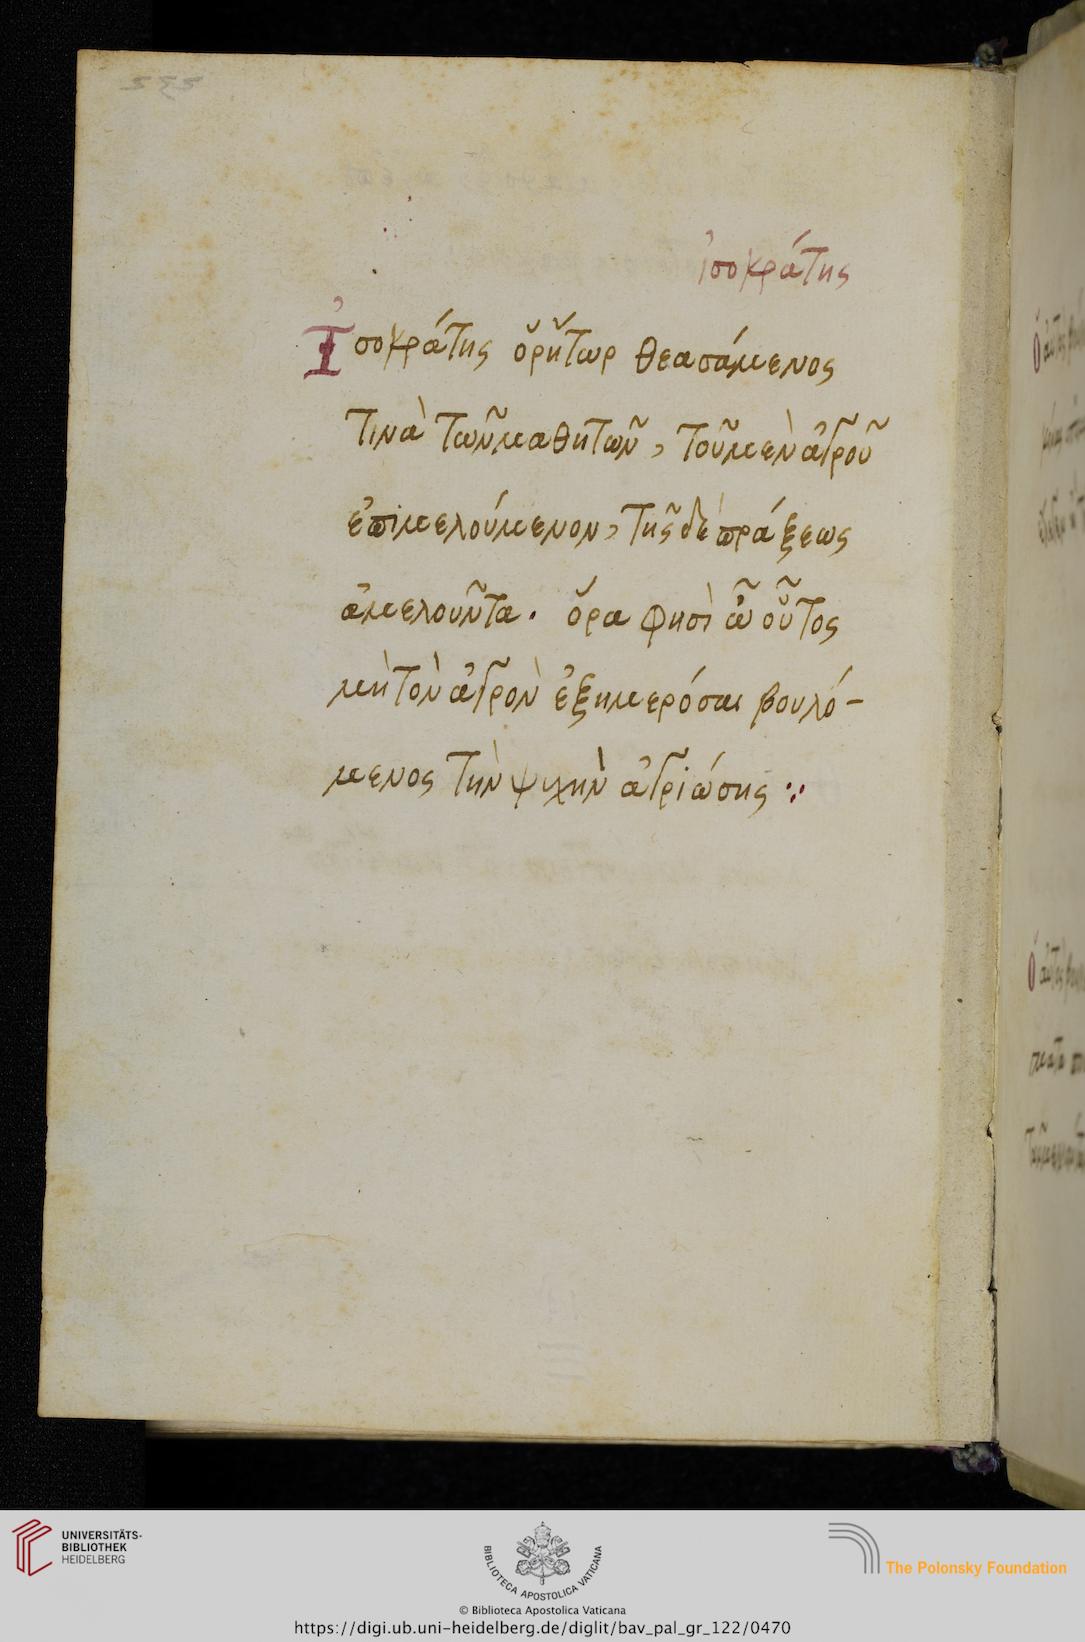 ἰσοκράτης
Ἰσοκράτης ὁ ῥήτωρ θεασάμενος
τινὰ τῶν μαθητῶν, τοῦ μὲν ἀγροῦ
ἐπιμελούμενον, τῆς δὲ πράξεως
ἀμελοῦντα. ὅρα φησὶ ὦ οὗτος
μὴ τὸν ἀγρὸν ἐξημερόσαι βουλό-
μενος τὴν ψυχὴν ἀγριώσης :·
UNIVERSITÄTS-
BIBLIOTHEK
HEIDELBERG
BIBLIOTECA APOSTOLICA VATICANA
The Polonsky Foundation
© Biblioteca Apostolica Vaticana
https://digi.ub.uni-heidelberg.de/diglit/bav_pal_gr_122/0470